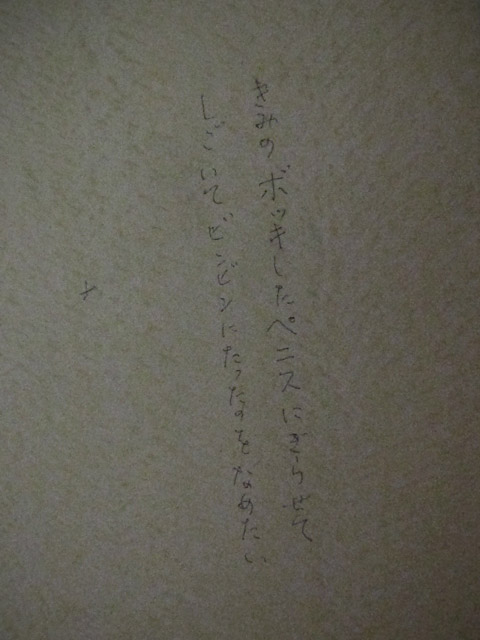 きみのボッキしたペニスにぎらせて
しごいてビンビンにたったのをなめたい